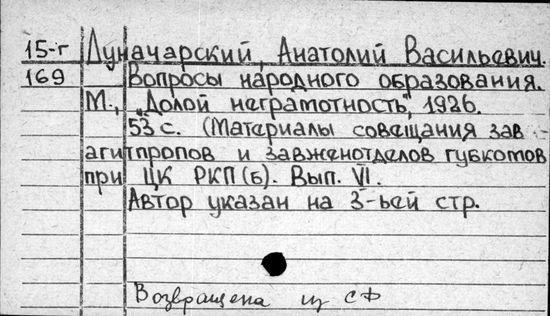 15-г Луначарский, Анатолий Васильевич.
169 Вопросы народного образования.
М., „Долой неграмотность", 1926.
53 с. (Материалы совещания зав
агитпропов и завженотделов губкомов
при ЦК РКП(б). Вып. VI.
Автор указан на 3-ьей стр.
Возвращена из СФ